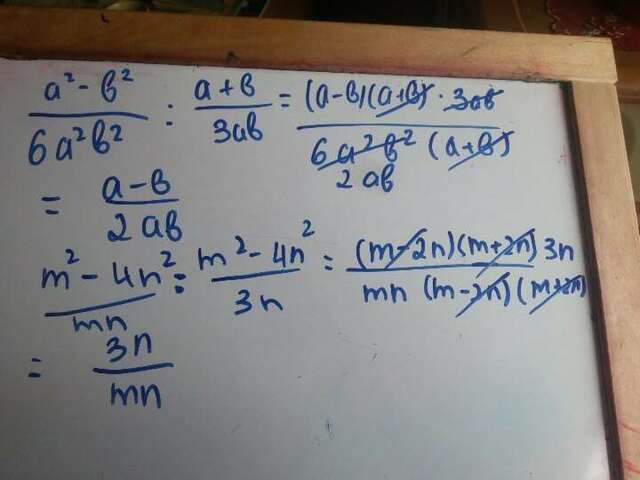 a² - в² / 6a²в² : a+в / 3aв = (a-в)(a+в) · 3aв / 6a²в² (a+в) 2aв
= a-в / 2aв
m² - 4n² / mn : m² - 4n² / 3n = (m-2n)(m+2n) 3n / mn (m-2n)(m+2n)
= 3n / mn